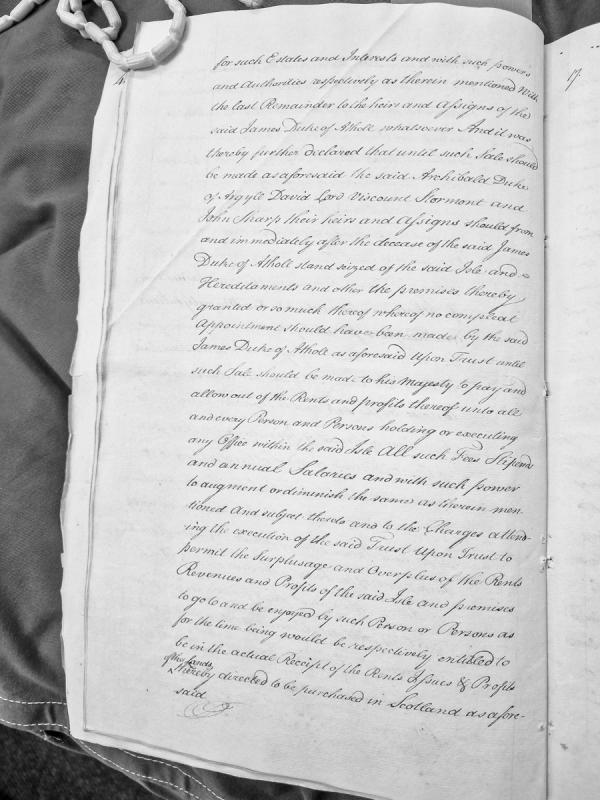 16
17
for such Estates and Interests and with such powers
and Authorities respectively as therein mentioned With
the last Remainder to the heirs and Assigns of the
said James Duke of Atholl whatsoever And it was
thereby further declared that until such Sale should
be made as aforesaid the said Archibald Duke
of Argyle David Lord Viscount Stormont and
John Sharp their heirs and Assigns should from
and immediately after the decease of the said James
Duke of Atholl stand seized of the said Isle and
Hereditaments and other the premises thereby
granted or so much thereof whereof no compleat
Appointment should have been made by the said
James Duke of Atholl as aforesaid Upon Trust until
such Sale should be made to his Majesty to pay and
allow out of the Rents and profits thereof unto all
and every Person and Persons holding or executing
any Office within the said Isle All such Fees Stipends
and annual Salaries and with such power
to augment or diminish the same as therein men-
tioned And subject thereto and to the Charges attend-
ing the execution of the said Trust Upon Trust to
permit the Surplusage and Overplus of the Rents
Revenues and Profits of the said Isle and premises
to go to and be enjoyed by such Person or Persons as
for the time being would be respectively entitled to
be in the actual Receipt of the Rents Issues & Profits
of the lands
thereby directed to be purchased in Scotland as afore-
said